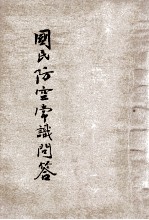 國民防空常識問答